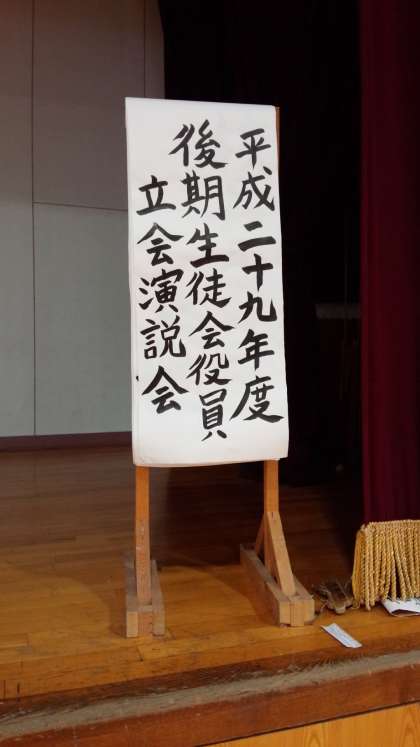 平成二十九年度
後期生徒会役員
立会演説会